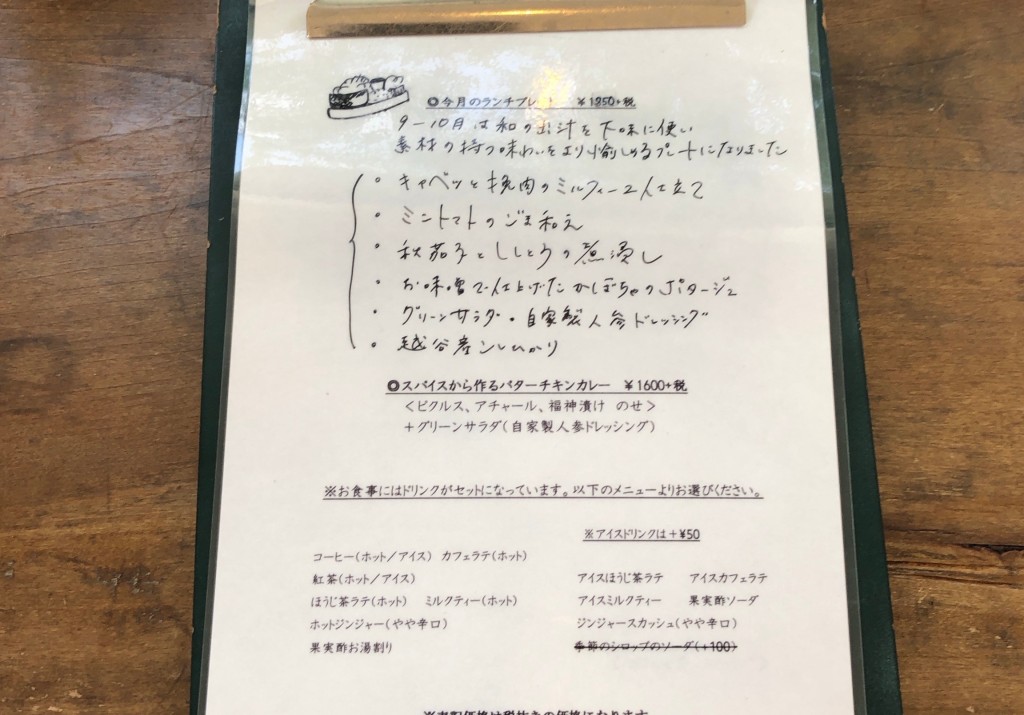 ◎今月のランチプレート ¥1850+税
9-10月は和のお出汁を下味に使い
素材の持つ味わいをより愉しめるプレートになりました
・キャベツと挽肉のミルフィーユ仕立て
・ミニトマトのごま和え
・秋茄子とししとうの煮浸し
・お味噌で仕上げたかぼちゃのポタージュ
・グリーンサラダ・自家製人参ドレッシング
・越谷産コシヒカリ
◎スパイスから作るバターチキンカレー ¥1600+税
<ピクルス、アチャール、福神漬け のせ>
+グリーンサラダ(自家製人参ドレッシング)
※お食事にはドリンクがセットになっています。以下のメニューよりお選びください。
※アイスドリンクは+¥50
コーヒー(ホット/アイス) カフェラテ(ホット)
紅茶(ホット/アイス) アイスほうじ茶ラテ アイスカフェラテ
ほうじ茶ラテ(ホット) ミルクティー(ホット) アイスミルクティー 果実酢ソーダ
ホットジンジャー(やや辛口) ジンジャースカッシュ(やや辛口)
果実酢お湯割り 季節のシロップのソーダ(+100)
※表記価格は税抜きの価格になります